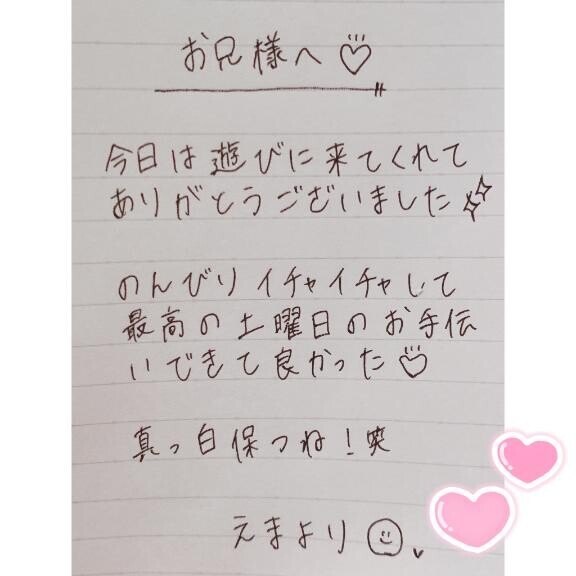 お兄様へ♡
今日は遊びに来てくれて
ありがとうございました✨
のんびりイチャイチャして
最高の土曜日のお手伝
いできて良かった♡
真っ白保つね!笑
えまより